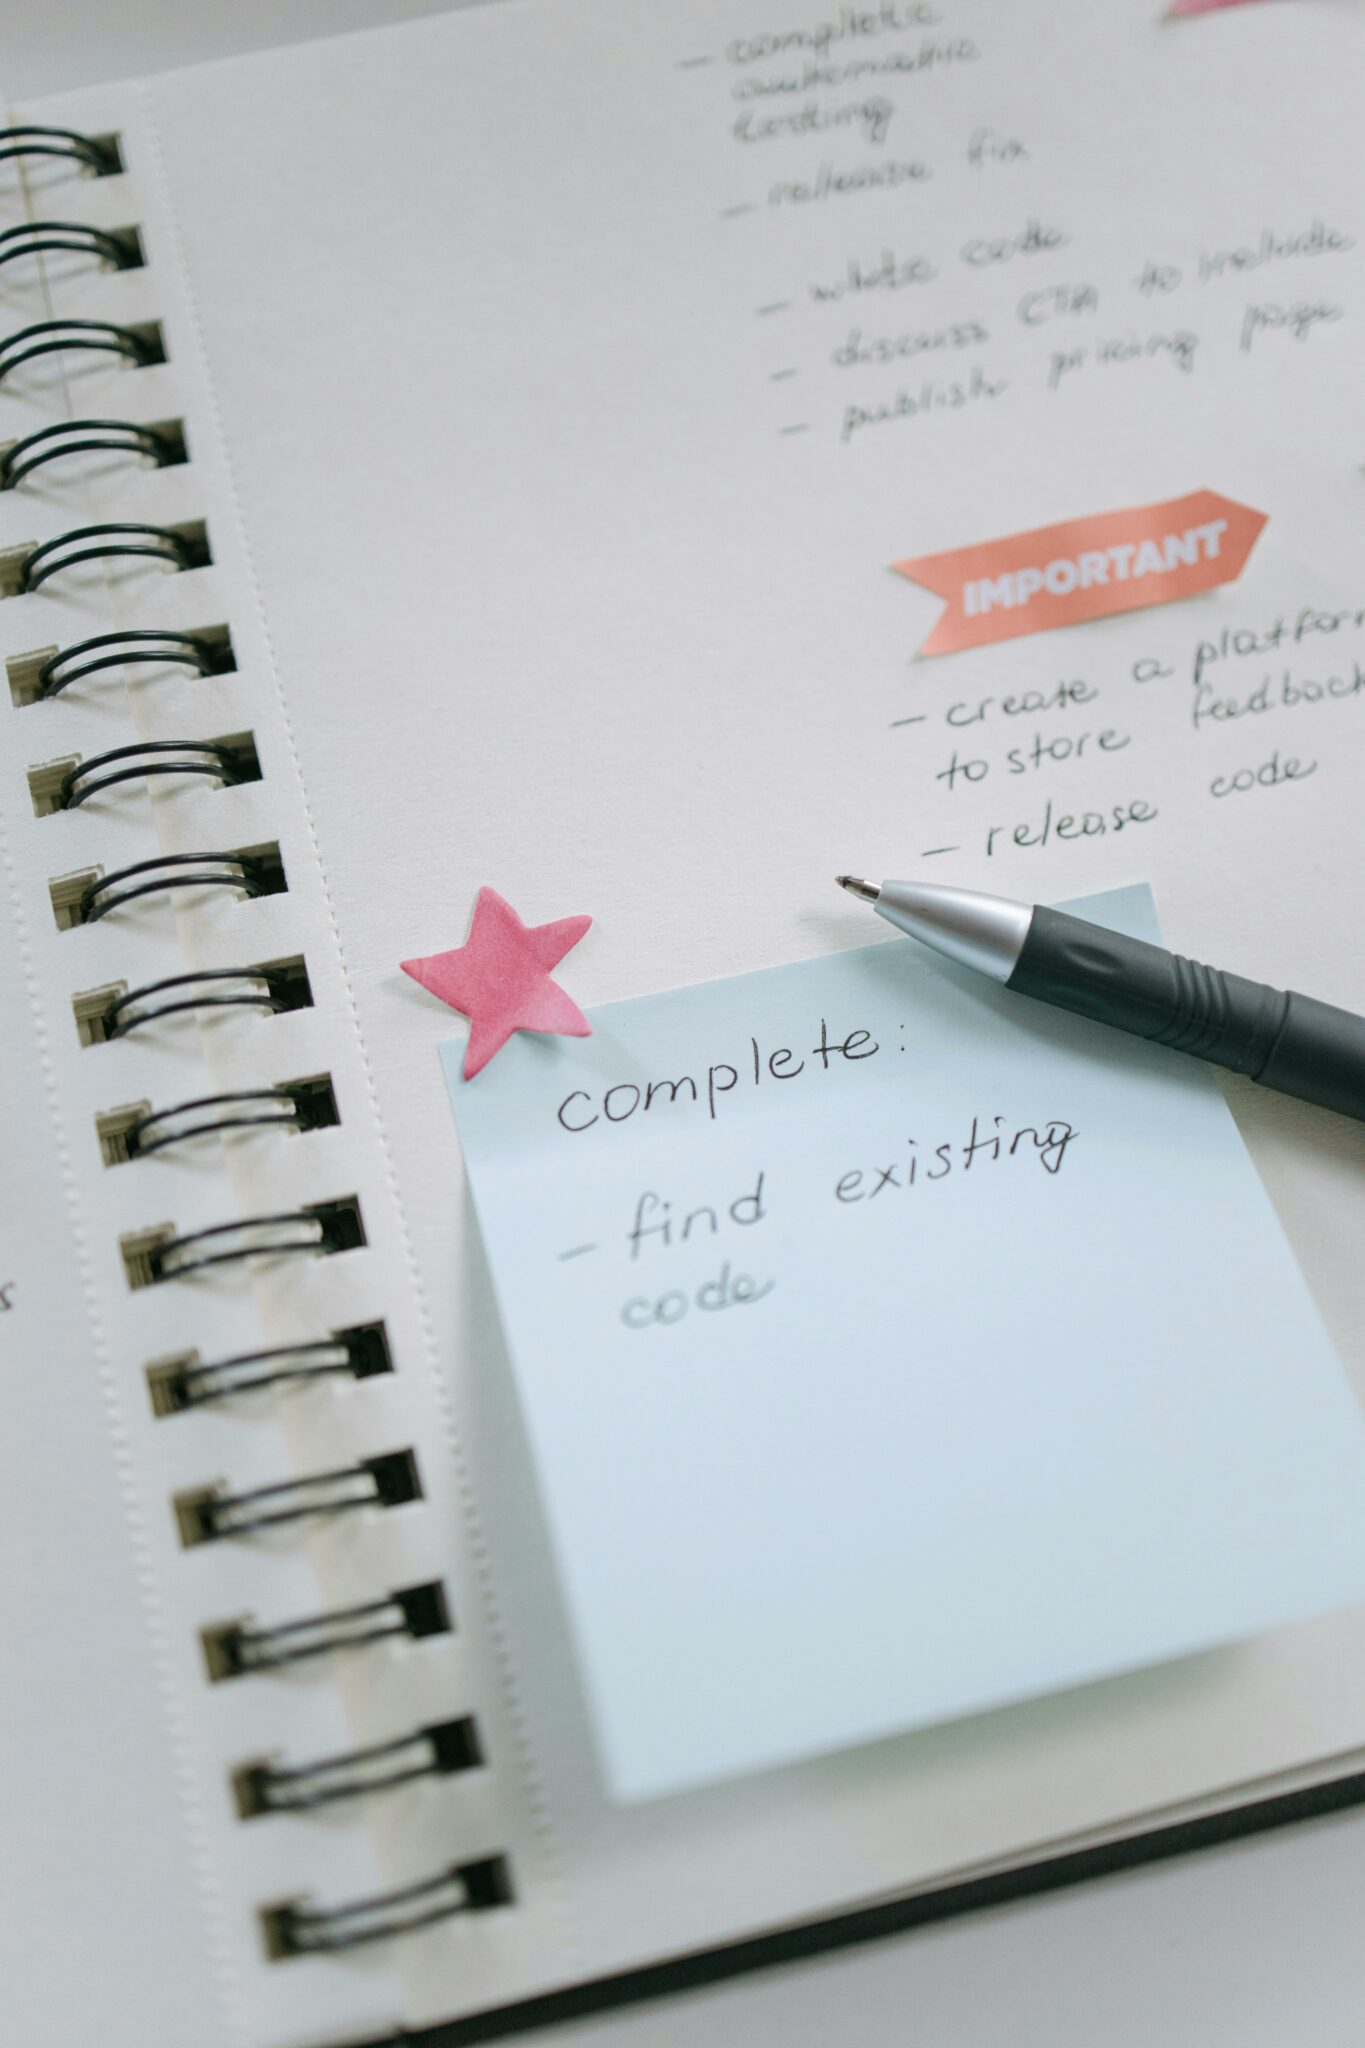 - complete
automatic
testing
- release fix
- write code
- discuss CTA to include
- publish pricing page
IMPORTANT
- create a platform
to store feedback
- release code
complete:
- find existing
code
s